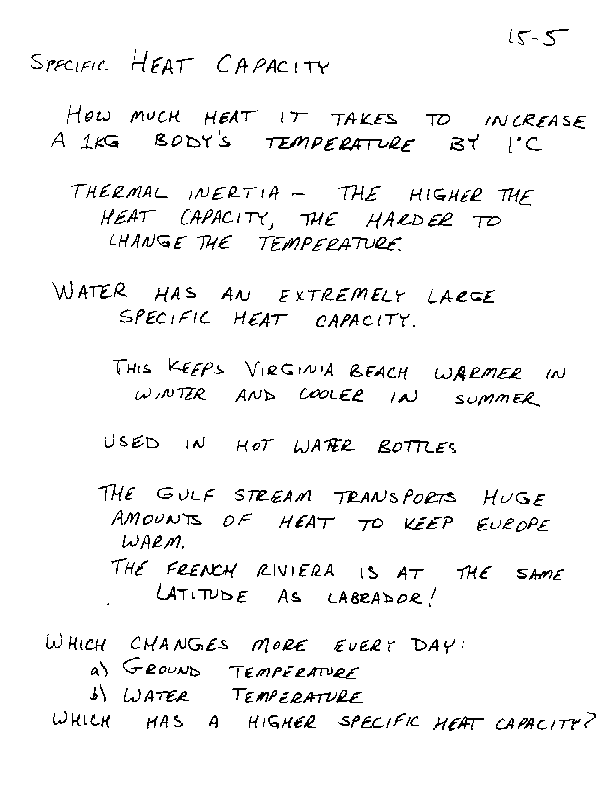 15-5
SPECIFIC HEAT CAPACITY
HOW MUCH HEAT IT TAKES TO INCREASE
A 1KG BODY'S TEMPERATURE BY 1°C
THERMAL INERTIA - THE HIGHER THE
HEAT CAPACITY, THE HARDER TO
CHANGE THE TEMPERATURE.
WATER HAS AN EXTREMELY LARGE
SPECIFIC HEAT CAPACITY.
THIS KEEPS VIRGINIA BEACH WARMER IN
WINTER AND COOLER IN SUMMER
USED IN HOT WATER BOTTLES
THE GULF STREAM TRANSPORTS HUGE
AMOUNTS OF HEAT TO KEEP EUROPE
WARM.
THE FRENCH RIVIERA IS AT THE SAME
LATITUDE AS LABRADOR!
WHICH CHANGES MORE EVERY DAY:
a) GROUND TEMPERATURE
b) WATER TEMPERATURE
WHICH HAS A HIGHER SPECIFIC HEAT CAPACITY?